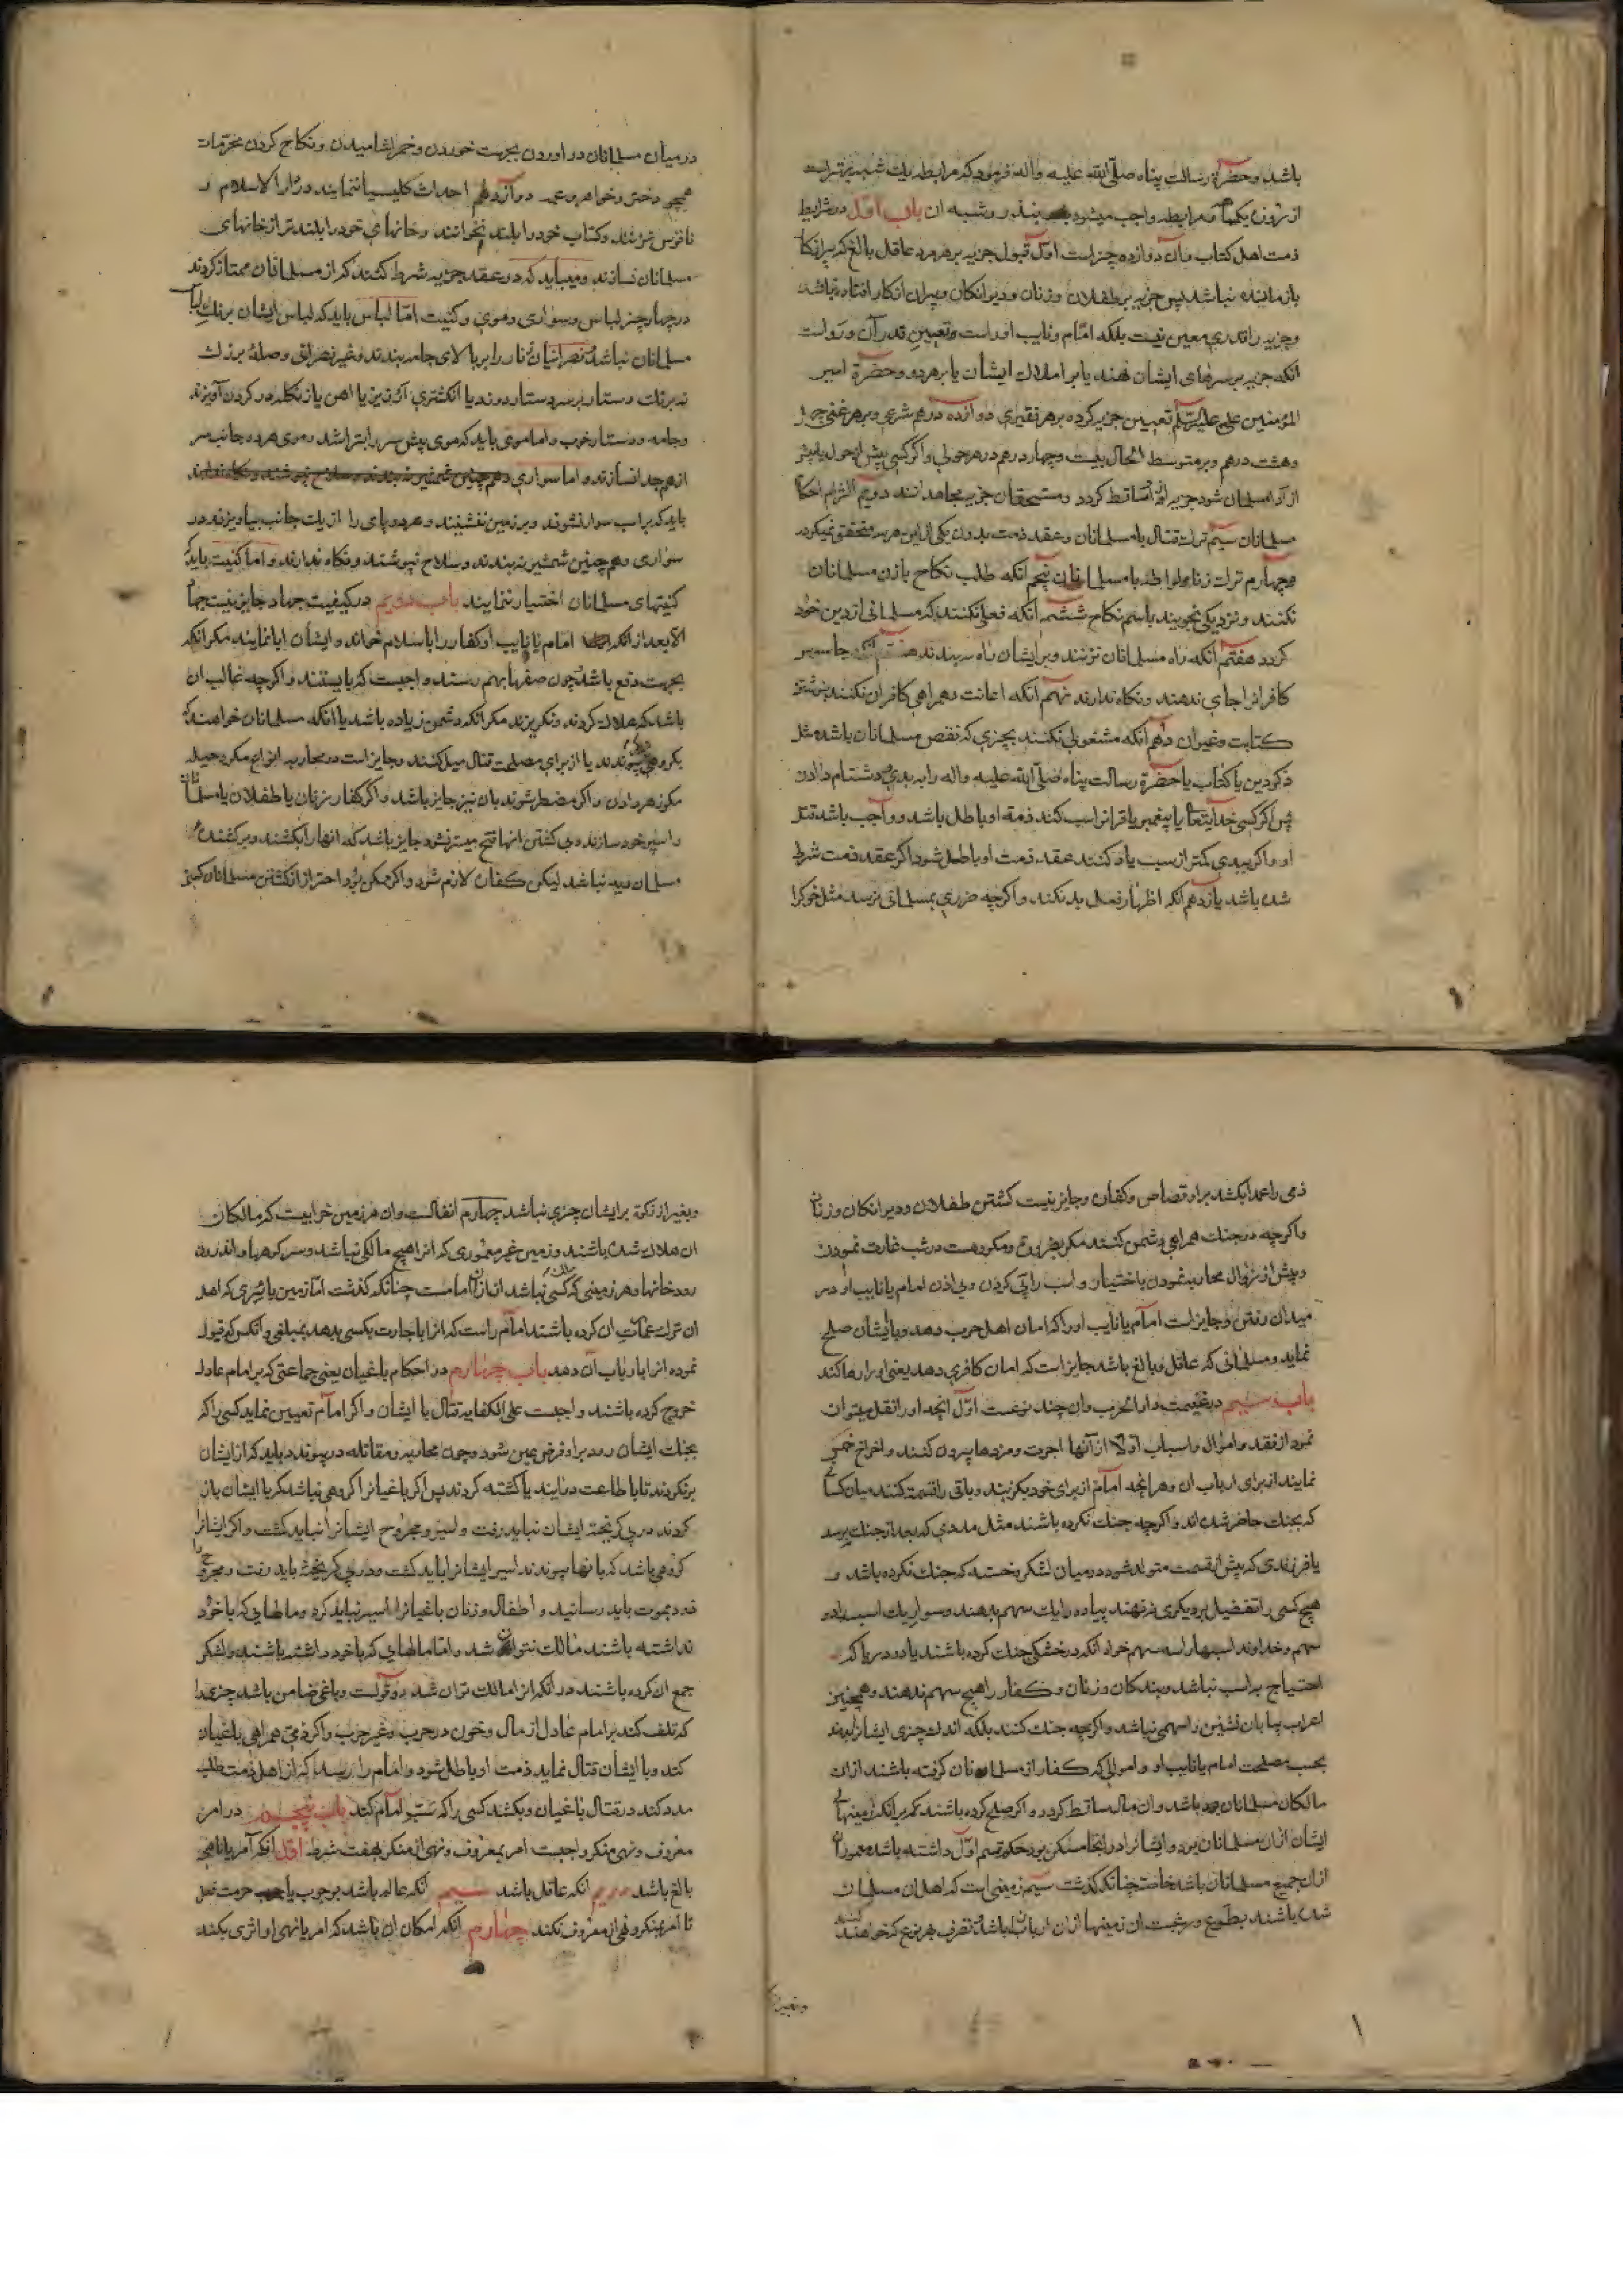 باشد وحضرة رسالت پناه صلّى الله عليه واله فرمود كه مرابطه يك شب بهتر است
از روزه يكماه ومرابطه واجب ميشود بنذر وشبه ان باب اوّل در شرايط
ذمت اهل كتاب وآن دوازده چيز است اوّل قبول جزيه بر هر مرد عاقل بالغ كه پير از كار
بازمانده نباشد پس جزيه بر طفلان وزنان وديوانكان وپيران از كار افتاده نباشد
وجزيه را قدرى معين نيست بلكه امام ونايب او راست وتعيين قدر آن ورواست
آنكه جزيه بر سرهاى ايشان نهند يا بر املاك ايشان يا بر هر دو وحضرة امير
المؤمنين على عليه السّلم تعيين جزيه كرده بر هر فقيرى دوازده درهم شرعى وبر هر غنى چهل
وهشت درهم وبر متوسط الحال بيست وچهار درهم در هر حولى واكر كسى پيش از حول يا پيشتر
از اداء مسلمان شود جزيه از او ساقط كردد ومستحقان جزيه مجاهدانند دويم التزام احكام
مسلمانان سيم ترك قتال با مسلمانان وعقد ذمت بدون يكى از اين هر سه متحقق نميكردد
وچهارم ترك زنا ولواطه با مسلمانان پنجم آنكه طلب نكاح با زن مسلمانان
نكنند ونزديكى نجويند باسم نكاح ششم آنكه فعلى نكنند كه مسلمانى از دين خود
كردد هفتم آنكه راه مسلمانان نزنند وبر ايشان راه نبندند هشتم آنكه جاسوس
كافرانرا جاى ندهند ونكاه ندارند نهم آنكه اعانت وهمراهى كافران نكنند بنوشتن
كتابت وغير ان دهم آنكه مشغولى نكنند بچيزى كه نقص مسلمانان باشد مثل
ذكر دين يا كتاب يا حضرة رسالت پناه صلّى الله عليه واله را ببدى ودشنام دادن
پس اكر كسى خدايتعالى يا پيغمبر يا قرآنرا سب كند ذمه او باطل باشد وواجب باشد قتل
او واكر ببدى كمتر از سب ياد كنند عقد ذمت او باطل شود اكر عقد ذمت شرط
شده باشد يازدهم آنكه اظهار فعل بد نكند واكرچه ضررى بمسلمانى نرسد مثل خوكرا
در ميان مسلمانان در اوردن بجهت خوردن وخمر اشاميدن ونكاح كردن محرّمات
همچو دختر وخواهر وعمه دوازدهم احداث كليسيا ننمايند در دار الاسلام و
ناقوس نزنند وكتاب خود را بلند نخوانند وخانهاى خود را بلندتر از خانهاى
مسلمانان نسازند وميبايد كه در عقد جزيه شرط كنند كه از مسلمانان ممتاز كردند
در چهار چيز لباس وسوارى وموى وكنيت امّا لباس بايد كه لباس ايشان برنك لباس
مسلمانان نباشد ونصرانيان زنار را بر بالاى جامه بندند وغير نصرانى وصلۀ بزرك
نه برنك دستار بر سر دستار دوزند يا انكشترى از روى يا آهن يا زنكله در كردن آويزند
وجامه ودستار خوب واما موى بايد كه موى پيش سر را بتراشند وموى هر دو جانب سر
از هم جدا نسازند واما سوارى
بايد كه بر اسب سوار نشوند وبر زين ننشينند وهر دو پاى را از يك جانب بياويزند در
سوارى وهمچنين شمشير نه بندند وسلاح نپوشند ونكاه ندارند واما كنيت بايد كه
كنيتهاى مسلمانان اختيار ننمايند باب دويم در كيفيت جهاد جايز نيست جهاد
الا بعد از آنكه امام يا نايب او كفار را باسلام خواند وايشان ابا نمايند مكر آنكه
بجهت دفع باشد وچون صفها بهم رسند واجبست كه بايستند واكرچه غالب ان
باشد كه هلاك كردند ونكريزند مكر آنكه دشمن زياده باشد يا آنكه مسلمانان خواهند كه
بكروهى پيوندند يا از براى مصلحت قتال ميل كنند وجايز است در محاربه انواع مكر وحيله
مكر زهر دادن واكر مضطر شوند بان نيز جايز باشد واكر كفار زنان يا طفلان يا مسلمانان
را سپر خود سازند وبى كشتن انها فتح ميسر نشود جايز باشد كه انهارا بكشند وبر كشنده
مسلمان ديه نباشد ليكن كفارت لازم شود واكر ممكن بود احتراز از كشتن مسلمانان كسى
ذمى را عمدا بكشد بر او قصاص وكفارت وجايز نيست كشتن طفلان وديوانكان وزنان
واكرچه در جنك همراهى دشمن كنند مكر بضرورت ومكروهست در شب غارت نمودن
وپيش از زوال محاربه نمودن باختيار واسب را پى كردن وبى اذن امام يا نايب او در
ميدان رفتن وجايز است امام يا نايب اورا كه امان اهل حرب دهد وبا ايشان صلح
نمايد ومسلمانى كه عاقل وبالغ باشد جايز است كه امان كافرى دهد يعنى او را رها كند
باب سيم در غنيمت دار الحرب وان چند نوعست اوّل آنچه اورا نقل ميتوان
نمود از نقد واموال واسباب اوّلا از آنها اجرت ومزدها بيرون كنند واخراج خمس
نمايند از براى ارباب ان وهر انچه امام از براى خود بكزيند وباقى را قسمت كنند ميان كسانى
كه بجنك حاضر شده اند واكرچه جنك نكرده باشند مثل مددى كه بعد از جنك برسد
يا فرزندى كه پيش از قسمت متولد شود در ميان لشكر وخسته كه جنك نكرده باشد و
هيچ كسى را تفضيل بر ديكرى ننهند پياده را يك سهم بدهند وسوار يك اسبه را دو
سهم وخداوند اسبهارا سه سهم خواه آنكه در خشكى جنك كرده باشند يا در دريا كه
احتياج به اسب نباشد وبندكان وزنان وكفار را هيچ سهم ندهند وهمچنين
اعراب بيابان نشين را سهمى نباشد واكرچه جنك كنند بلكه اندك چيزى ايشانرا بدهند
بحسب مصلحت امام يا نايب او واموالى كه كفار از مسلمانان كرفته باشند از ان
مالكان مسلمانان باشد وان مال ساقط كردد واكر صلح كرده باشند كه بر آنكه زمينهاى
ايشان از ان مسلمانان بود وايشانرا در انجا مسكن بود حكم قسم اوّل داشته باشد ومعمور ان
از ان جميع مسلمانان باشد خاصة چنانكه كذشت سيم زمينى است كه اهل ان مسلمان
شده باشند بطوع ورغبت ان زمينها از ان ارباب انها باشد تصرف بهر نوع كه خواهند كنند
وبغير از زكوة بر ايشان چيزى نباشد چهارم انفالست وان هر زمين خرابيست كه مالكان
ان هلاك شده باشند وزمين غير معمورى كه انرا هيچ مالكى نباشد وسر كوهها واندرون
رودخانها وهر زمينى كه ملك كسى نباشد از ان امامست چنانكه كذشت امّا زمين بايرى كه اهل
ان ترك عمارت ان كرده باشند امام راست كه انرا باجارت بكسى بدهد بمبلغى وانكس كه قبول
نموده انرا بارباب ان دهد باب چهارم در احكام ياغيان يعنى جماعتى كه بر امام عادل
خروج كرده باشند واجبست على الكفايه قتال با ايشان واكر امام تعيين نمايد كسى را كه
بجنك ايشان رود بر او فرض عين شود وچون محاربه ومقاتله در پيوندد بايد كه از ايشان
برنكردند تا با طاعت در ايند يا كشته كردند پس اكر ياغيانرا كروهى نباشد كه با ايشان باز
كردند در پى كريخته ايشان نبايد رفت واسير ومجروح ايشانرا نبايد كشت واكر ايشانرا
كروهى باشد كه بانها پيوندند اسير ايشانرا بايد كشت ودر پى كريخته بايد رفت ومجروح را
زود بموت بايد رسانيد واطفال وزنان ياغيانرا اسير نبايد كرد ومالهايى كه با خود
نداشته باشند مالك نتوان شد واما مالهاى كه با خود داشته باشند ولشكر
جمع ان كرده باشند در آنكه انرا مالك توان شد دو قولست وياغى ضامن باشد چيزيرا
كه تلف كند بر امام عادل از مال وخون در حرب وغير حرب واكر ذمى همراهى ياغيان
كند وبا ايشان قتال نمايد ذمت او باطل شود وامام را رسد كه از اهل ذمت طلب
مدد كند در قتال ياغيان وبكشد كسى را كه سبّ امام كند باب پنجم در امر
معروف ونهى منكر واجبست امر بمعروف ونهى از منكر بهفت شرط اوّل آنكه آمر يا ناهى
بالغ باشد دويم آنكه عاقل باشد سيم آنكه عالم باشد بوجوب يا حرمت فعل
تا امر بمنكر ونهى از معروف نكند چهارم آنكه امكان ان باشد كه امر يا نهى او اثرى بكند
وبغير از